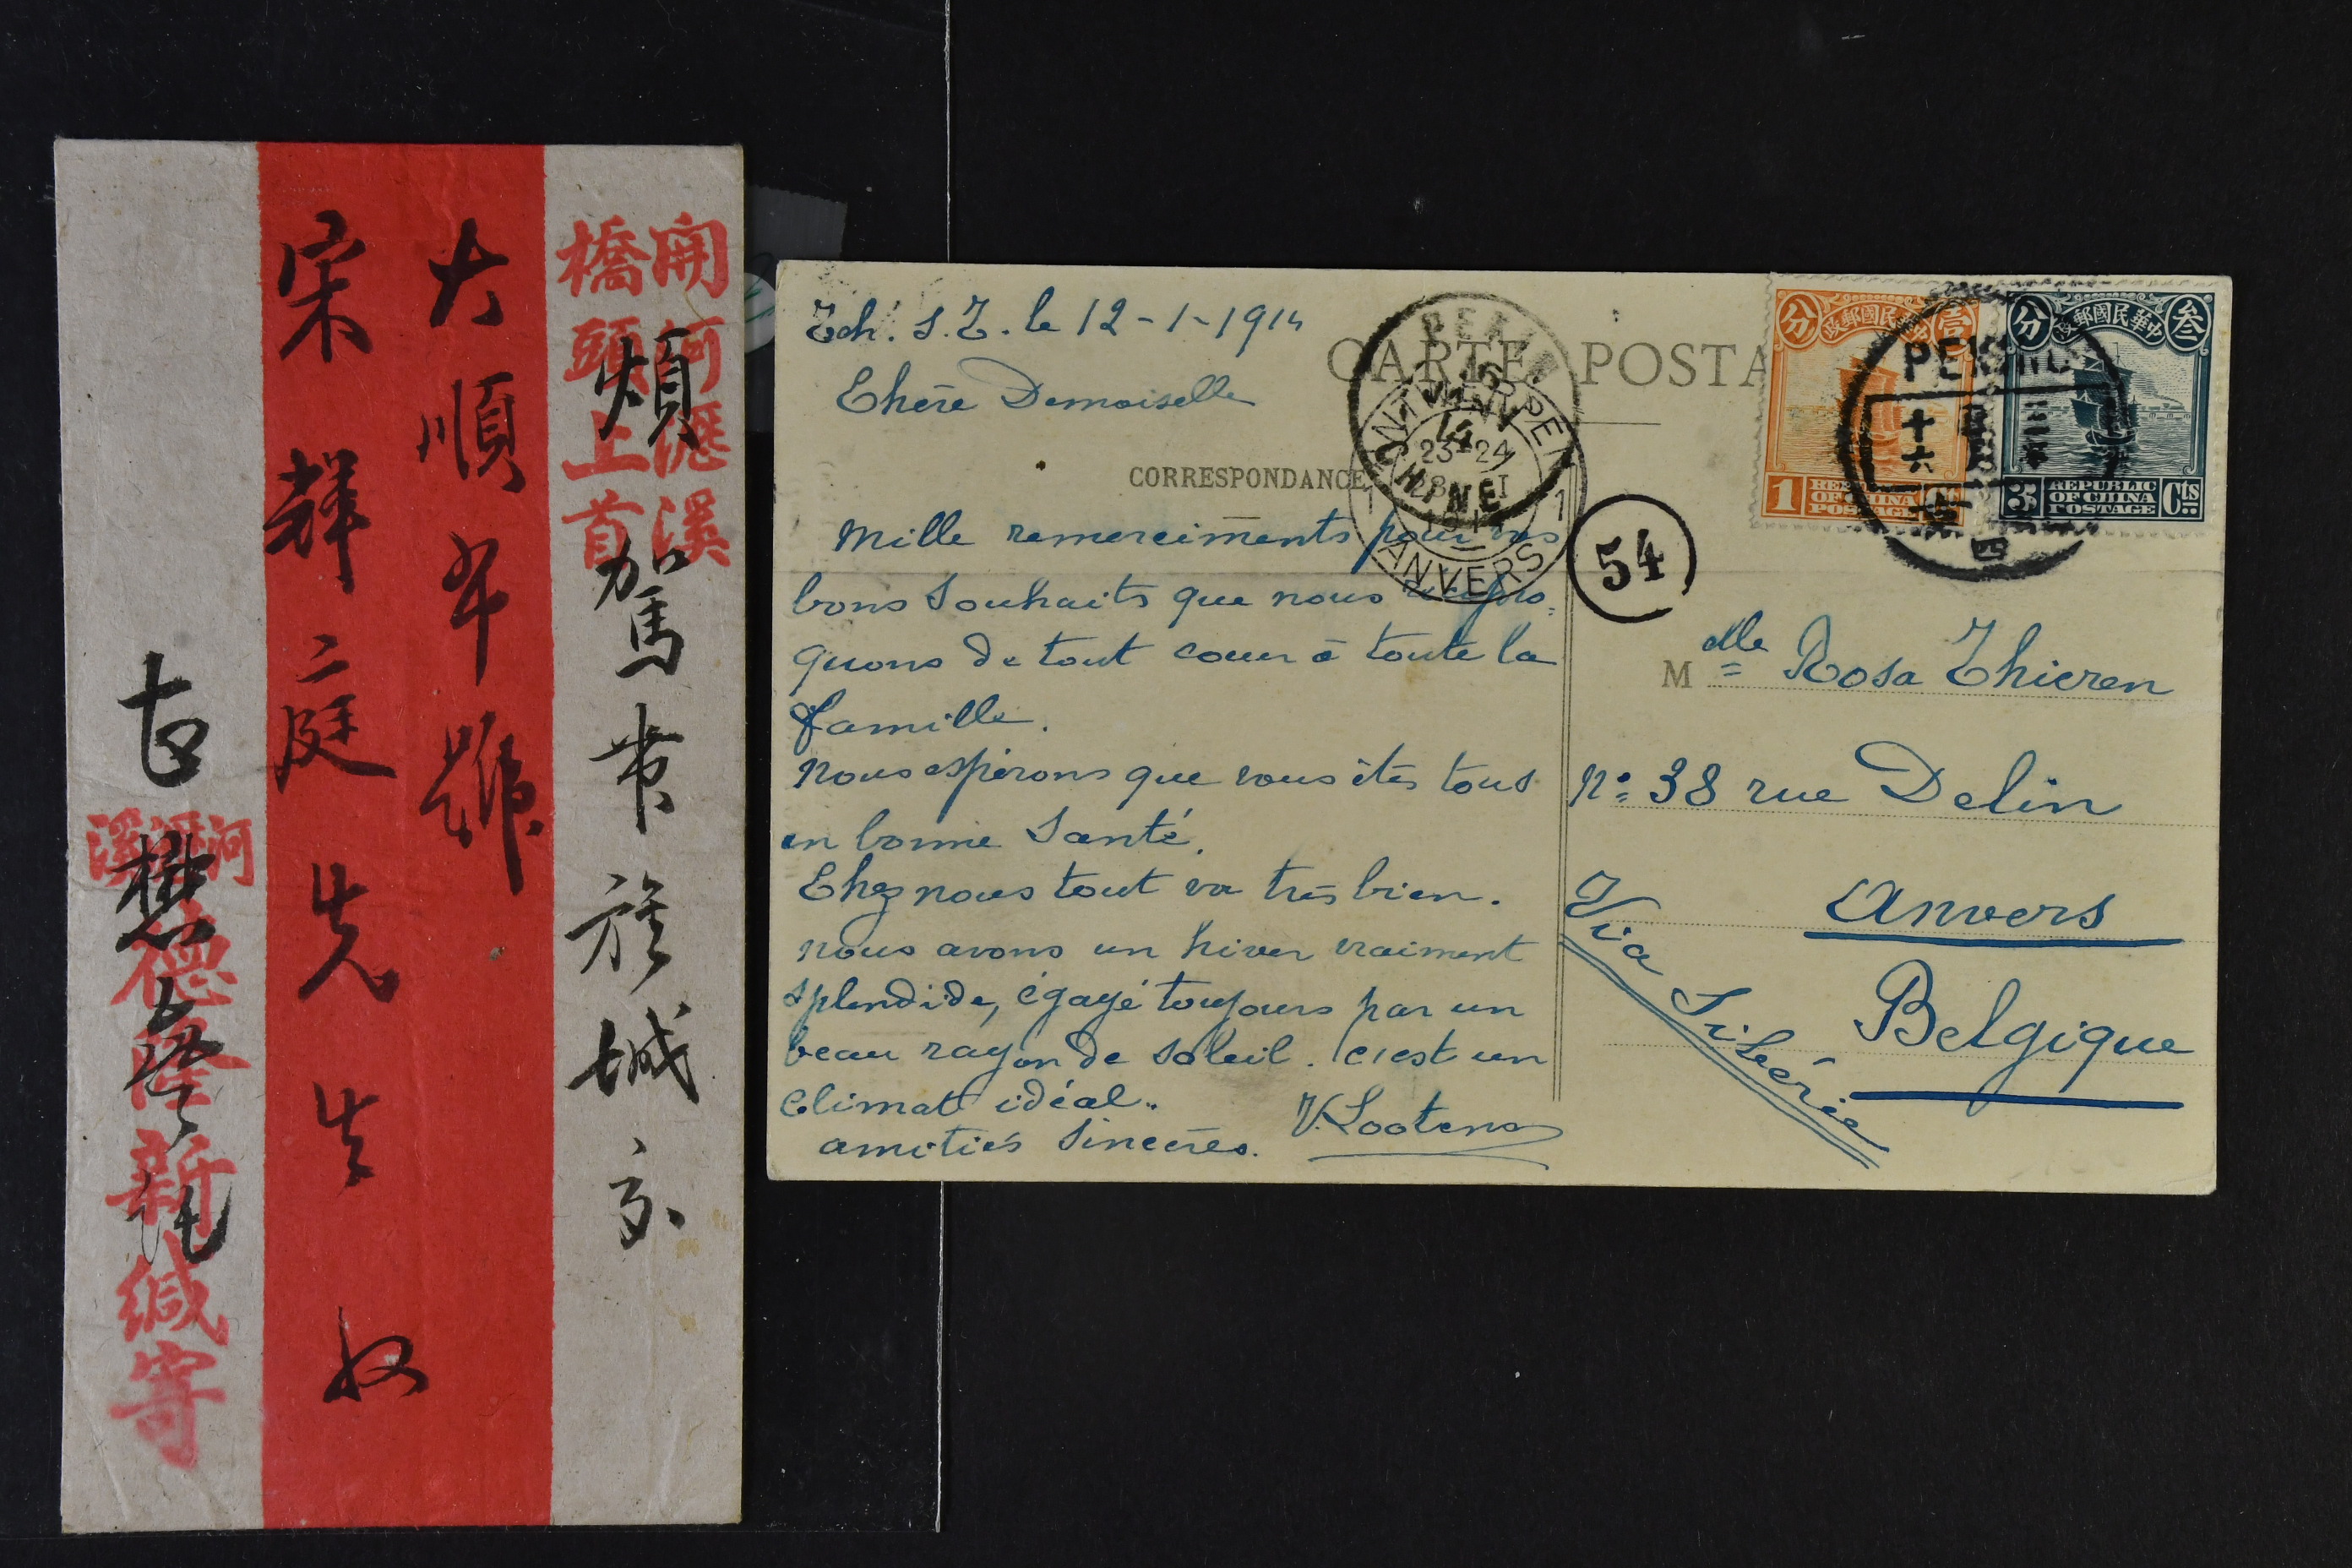 開河滙溪
橋頭上首
煩駕帶旌城交
大順年號
宋輝庭先生收
河滙溪
德隆新緘寄
吉懋
托
Tch. S. T. le 12-1-1914
Chère Demoiselle
CARTE POSTA
CORRESPONDANCE
Mille remerciments pour vos
bons souhaits que nous recipro-
quons de tout coeur à toute la
famille.
Nous espérons que vous êtes tous
en bonne santé.
Chez nous tout va très bien.
Nous avons un hiver vraiment
splendide, égayé toujours par un
beau rayon de soleil. C'est un
climat idéal.
amitiés sincères. V. Lootens
PEKIN
16
JANV
14
CHINE
ANTWERPEN
23-24
28 I
1 1
ANVERS
54
中華民國郵政
壹分
1
REPUBLIC
OF CHINA
POSTAGE
中華民國郵政
叁分
3 Cts
REPUBLIC
OF CHINA
POSTAGE
PEKING
十六
Mdlle Rosa Thieren
N° 38 rue Delin
Anvers
Belgique
Via Sibérie